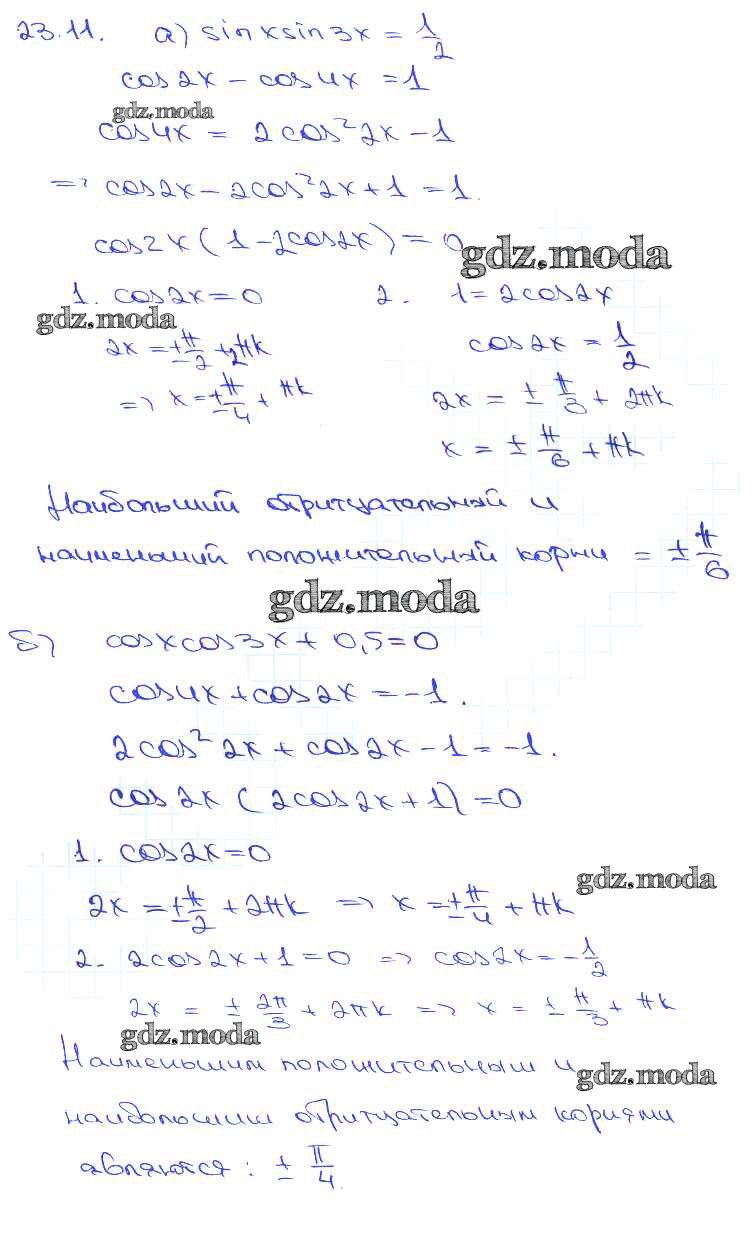 23.11. а) sinxsin3x = 1/2
cos2x - cos4x = 1
gdz.moda
cos4x = 2cos²2x - 1
=> cos2x - 2cos²2x + 1 = 1.
cos2x (1 - 2cos2x) = 0
gdz.moda
1. cos2x = 0 2. 1 = 2cos2x
gdz.moda
2x = ±π/2 + 2πk cos2x = 1/2
=> x = ±π/4 + πk 2x = ± π/3 + 2πk
x = ± π/6 + πk
Наибольший отрицательный и
наименьший положительный корни = ± π/6
gdz.moda
б) cosxcos3x + 0,5 = 0
cos4x + cos2x = -1.
2cos²2x + cos2x - 1 = -1.
cos2x (2cos2x + 1) = 0
1. cos2x = 0
gdz.moda
2x = ±π/2 + 2πk => x = ±π/4 + πk
2. 2cos2x + 1 = 0 => cos2x = -1/2
2x = ± 2π/3 + 2πk => x = ± π/3 + πk
gdz.moda
Наименьшим положительным и
gdz.moda
наибольшим отрицательным корнями
являются: ± π/4.